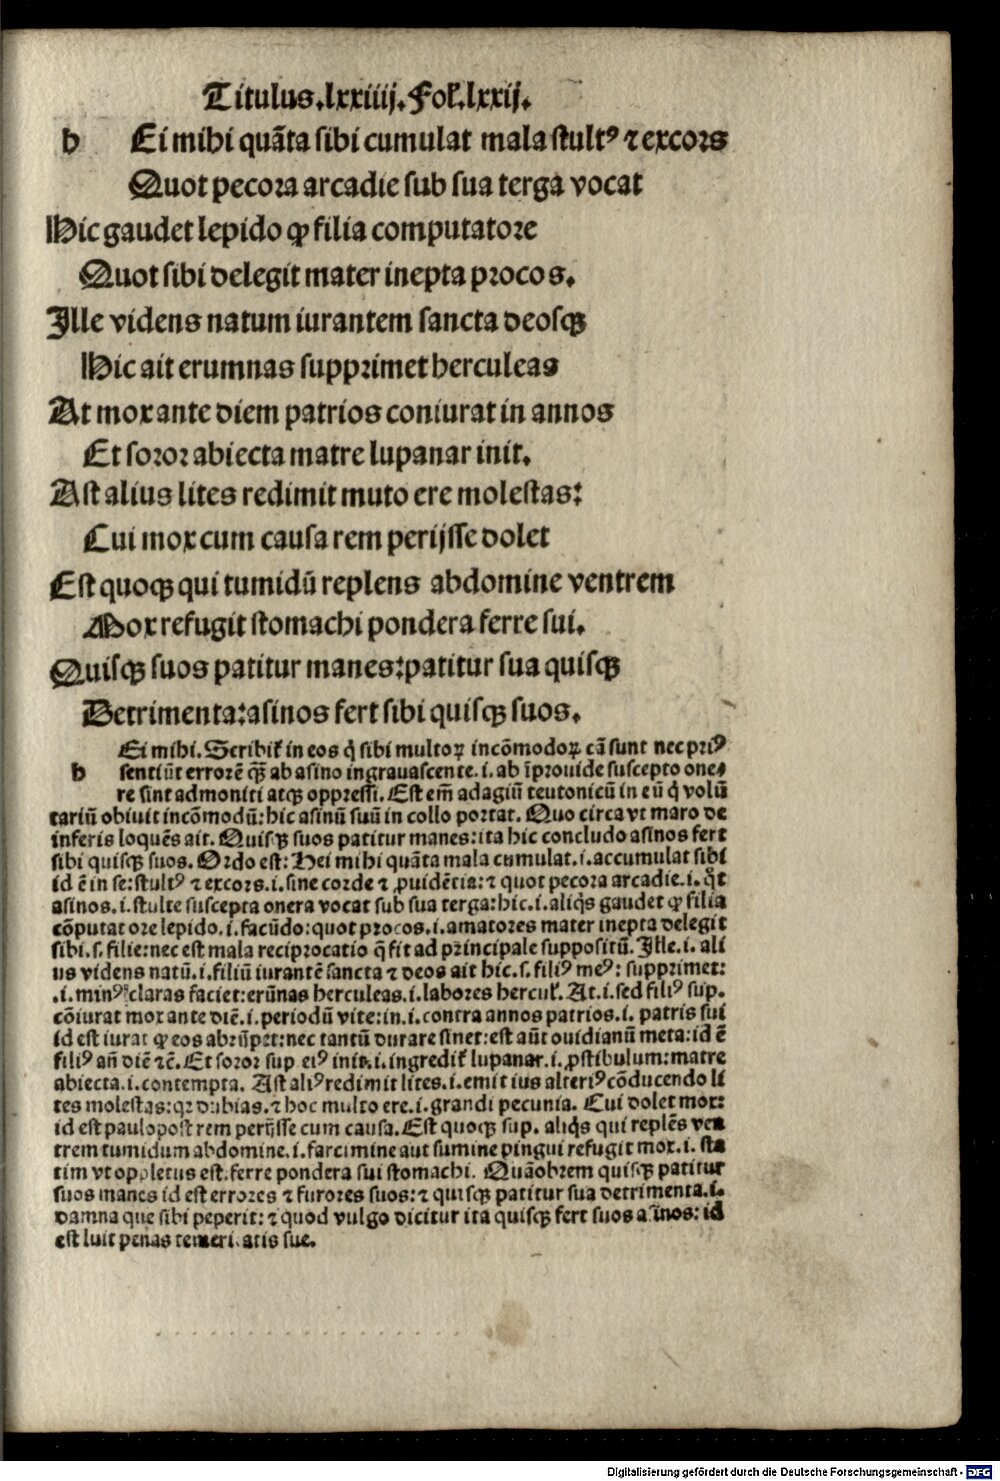 Titulus.lxxiiij.Fol̛.lxxij.
h Ei mihi quāta sibi cumulat mala stultꝰ ⁊ excors
Quot pecora arcadie sub sua terga vocat
Hic gaudet lepido ꝙ filia computatore
Quot sibi delegit mater inepta procos.
Ille videns natum iurantem sancta deosqꝫ
Hic ait erumnas supprimet herculeas
At mox ante diem patrios coniurat in annos
Et soror abiecta matre lupanar init.
Ast alius lites redimit muto ere molestas:
Cui mox cum causa rem perijsse dolet
Est quoqꝫ qui tumidū replens abdomine ventrem
Mox refugit stomachi pondera ferre sui.
Quisqꝫ suos patitur manes:patitur sua quisqꝫ
Detrimenta:asinos fert sibi quisqꝫ suos.
Ei mihi. Scribit̛ in eos q̇ sibi multoꝝ incōmodoꝝ cā sunt nec priꝰ
h sentiūt errorē qꝫ̄ ab asino ingrauascente.i. ab īprouide suscepto one⸗
re sint admoniti atqꝫ oppressi. Est em̄ adagiū teutonicū in eū q̇ volū
tariū obiuit incōmodū: hic asinū suū in collo portat. Quo circa vt maro de
inferis loquēs ait. Quisqꝫ suos patitur manes: ita hic concludo asinos fert
sibi quisqꝫ suos. Ordo est: Hei mihi quāta mala cumulat.i.accumulat sibi
id ē in se: stultꝰ ⁊ excors.i.sine corde ⁊ ꝓuidētia: ⁊ quot pecora arcadie.i. q̇t
asinos.i.stulte suscepta onera vocat sub sua terga: hic.i.aliq̇s gaudet ꝙ filia
cōputatore lepido.i.facūdo: quot procos.i.amatores mater inepta delegit
sibi.s. filie: nec est mala reciprocatio q̄ fit ad principale suppositū. Ille.i. ali
us videns natū.i.filiū iurantē sancta ⁊ deos ait hic.s.filiꝰ meꝰ: supprimet:
.i.minꝰ claras faciet: erūnas herculeas.i.labores hercul̛. At.i.sed filiꝰ sup.
cōiurat mox ante diē.i.periodū vite: in.i.contra annos patrios.i. patris sui
id est iurat ꝙ eos abrūpet: nec tantū durare sinet: est aūt ouidianū meta: id ē
filiꝰ an̄ diē ⁊c̄. Et soror sup. eiꝰ init.i.ingredit̛ lupanar.i.ꝓstibulum: matre
abiecta.i.contempta. Ast aliꝰ redimit lites.i.emit ius alteriꝰ cōducendo li
tes molestas: qꝛ dubias. ⁊ hoc multo ere.i.grandi pecunia. Cui dolet mox:
id est paulopost rem perijsse cum causa. Est quoqꝫ sup. aliq̇s qui replēs ven
trem tumidum abdomine.i.farcimine aut sumine pingui refugit mox.i. sta
tim vt oppletus est: ferre pondera sui stomachi. Quāobrem quisqꝫ patitur
suos manes id est errores ⁊ furores suos: ⁊ quisqꝫ patitur sua detrimenta.i.
damna que sibi peperit: ⁊ quod vulgo dicitur ita quisqꝫ fert suos asinos: id
est luit penas temeritatis sue.
Digitalisierung gefördert durch die Deutsche Forschungsgemeinschaft - DFG